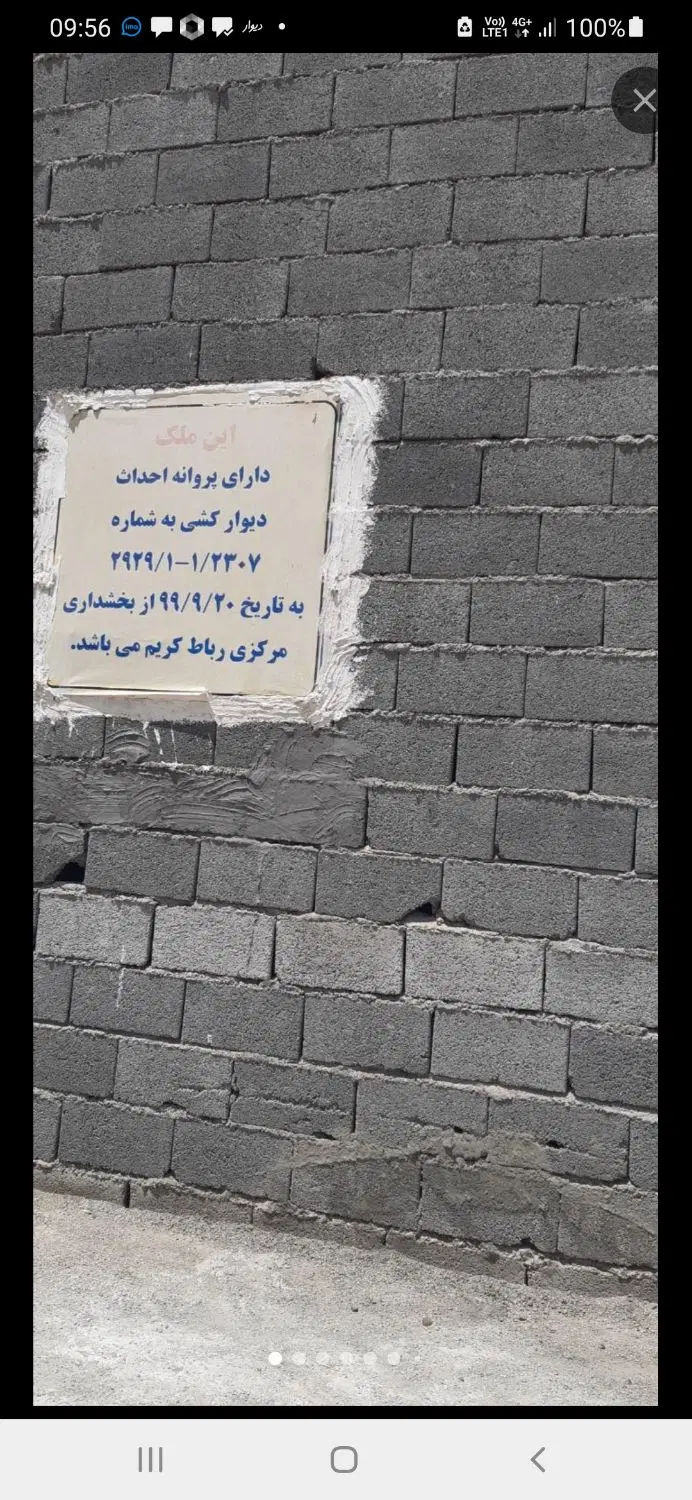 09:56 imo دیوار Vo)) LTE1 4G+ 100%
این ملک
دارای پروانه احداث
دیوار کشی به شماره
۲۹۲۹/۱–۱/۲۳۰۷
به تاریخ ۹۹/۹/۲۰ از بخشداری
مرکزی رباط کریم می باشد.